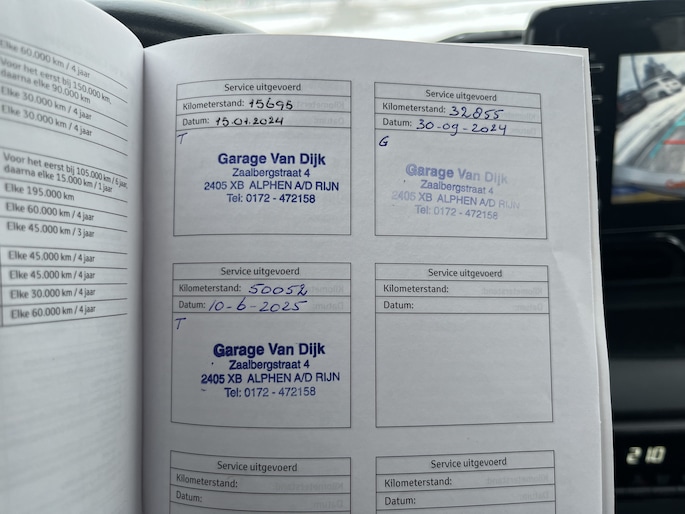 Elke 60.000 km / 4 jaar
Voor het eerst bij 150.000 km,
daarna elke 90.000 km
Elke 30.000 km / 4 jaar
Elke 30.000 km / 4 jaar
Voor het eerst bij 105.000 km / 6 jaar,
daarna elke 15.000 km / 1 jaar
Elke 195.000 km
Elke 60.000 km / 4 jaar
Elke 45.000 km / 3 jaar
Elke 45.000 km / 4 jaar
Elke 45.000 km / 4 jaar
Elke 30.000 km / 4 jaar
Elke 60.000 km / 4 jaar
Service uitgevoerd
Kilometerstand: 15695
Datum: 15.01.2024
T
Garage Van Dijk
Zaalbergstraat 4
2405 XB ALPHEN A/D RIJN
Tel: 0172 - 472158
Service uitgevoerd
Kilometerstand: 32855
Datum: 30-09-2024
G
Garage Van Dijk
Zaalbergstraat 4
2405 XB ALPHEN A/D RIJN
Tel: 0172 - 472158
Service uitgevoerd
Kilometerstand: 50052
Datum: 10-6-2025
T
Garage Van Dijk
Zaalbergstraat 4
2405 XB ALPHEN A/D RIJN
Tel: 0172 - 472158
Service uitgevoerd
Kilometerstand:
Datum:
Service uitgevoerd
Kilometerstand:
Datum:
Service uitgevoerd
Kilometerstand:
Datum:
21.0